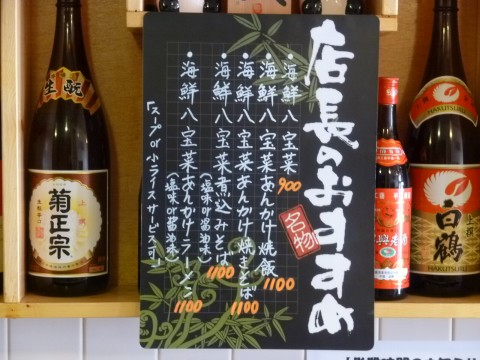 店長のおすすめ
名物
・海鮮八宝菜 900
・海鮮八宝菜あんかけ焼飯 1100
・海鮮八宝菜あんかけ焼きそば 1100
・海鮮八宝菜煮込みそば 1100
(塩味or醤油味)
・海鮮八宝菜あんかけラーメン 1100
(塩味or醤油味)
「スープor小ライスサービス可」
生酛
上撰
菊正宗
上撰
HAKUTSURU
白鶴
HAKUTSURU